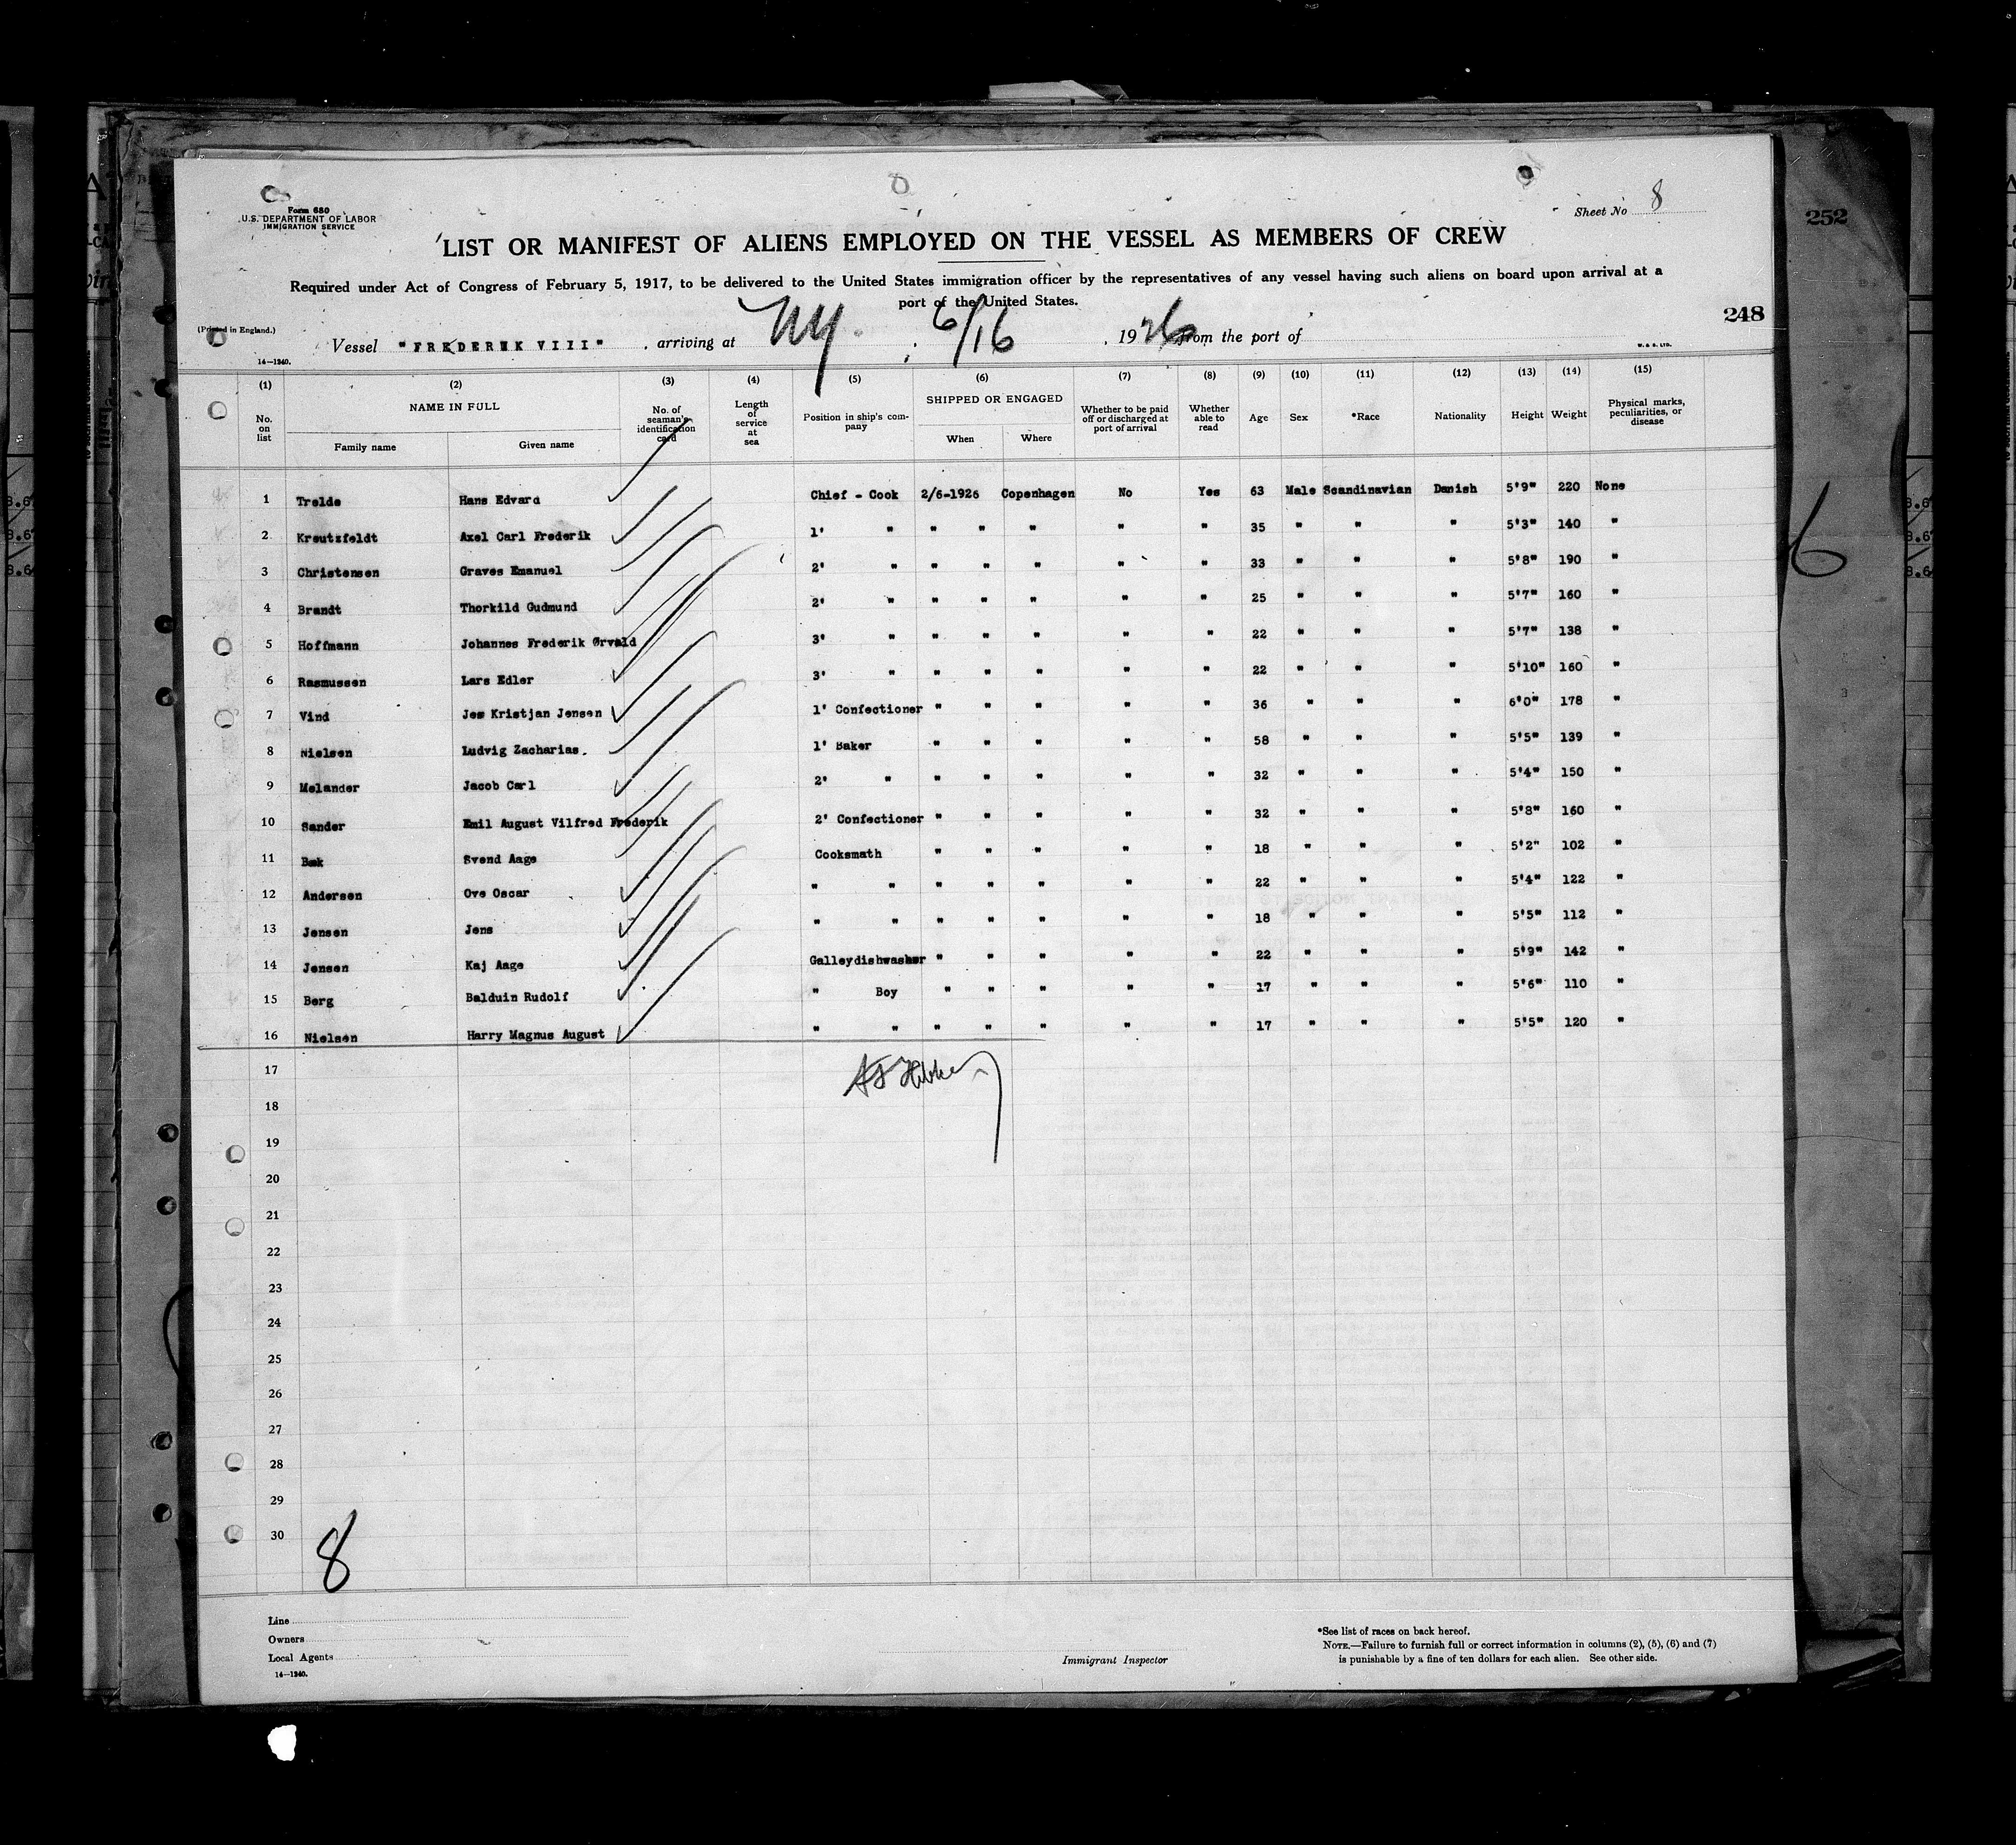 Form 680
U.S. DEPARTMENT OF LABOR
IMMIGRATION SERVICE
Sheet No 8
252
LIST OR MANIFEST OF ALIENS EMPLOYED ON THE VESSEL AS MEMBERS OF CREW
Required under Act of Congress of February 5, 1917, to be delivered to the United States immigration officer by the representatives of any vessel having such aliens on board upon arrival at a
port of the United States.
248
(Printed in England.)
Vessel "FREDERIK VIII" , arriving at NY. , 6/16 , 1926 from the port of
14—1240.
W. & S. LTD.
(1) (2) (3) (4) (5) (6) (7) (8) (9) (10) (11) (12) (13) (14) (15)
No. on list NAME IN FULL Family name Given name No. of seaman's identification card Length of service at sea Position in ship's company SHIPPED OR ENGAGED When Where Whether to be paid off or discharged at port of arrival Whether able to read Age Sex *Race Nationality Height Weight Physical marks, peculiarities, or disease
1 Trelde Hans Edvard Chief - Cook 2/6-1926 Copenhagen No Yes 63 Male Scandinavian Danish 5'9" 220 None
2 Kreutzfeldt Axel Carl Frederik 1' " " " " " " 35 " " " 5'3" 140 "
3 Christensen Graves Emanuel 2' " " " " " " 33 " " " 5'8" 190 "
4 Brandt Thorkild Gudmund 2' " " " " " " 25 " " " 5'7" 160 "
5 Hoffmann Johannes Frederik Ørvald 3' " " " " " " 22 " " " 5'7" 138 "
6 Rasmussen Lars Edler 3' " " " " " " 22 " " " 5'10" 160 "
7 Vind Jes Kristjan Jensen 1' Confectioner " " " " " 36 " " " 6'0" 178 "
8 Nielsen Ludvig Zacharias. 1' Baker " " " " " 58 " " " 5'5" 139 "
9 Melander Jacob Carl 2' " " " " " " 32 " " " 5'4" 150 "
10 Sander Emil August Vilfred Frederik 2' Confectioner " " " " " 32 " " " 5'8" 160 "
11 Bæk Svend Aage Cooksmath " " " " " 18 " " " 5'2" 102 "
12 Andersen Ove Oscar " " " " " " " 22 " " " 5'4" 122 "
13 Jensen Jens " " " " " " " 18 " " " 5'5" 112 "
14 Jensen Kaj Aage Galleydishwasher " " " " " 22 " " " 5'9" 142 "
15 Berg Balduin Rudolf " Boy " " " " " 17 " " " 5'6" 110 "
16 Nielsen Harry Magnus August " " " " " " " 17 " " " 5'5" 120 "
6
17
18
19
20
21
22
23
24
25
26
27
28
29
30
8
Line
Owners
Local Agents
14—1240.
Immigrant Inspector
*See list of races on back hereof.
NOTE.—Failure to furnish full or correct information in columns (2), (5), (6) and (7)
is punishable by a fine of ten dollars for each alien. See other side.